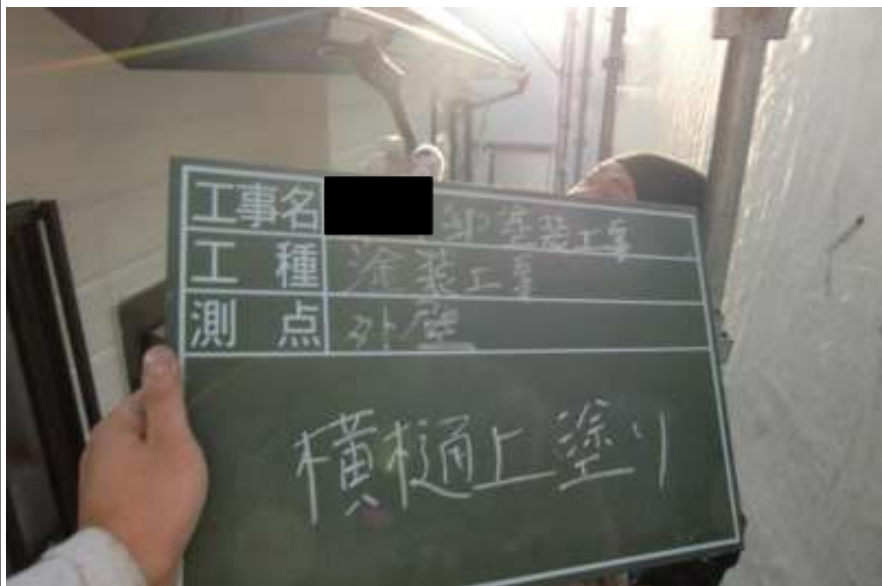 工事名 邸塗装工事
工種 塗装工事
測点 外壁
横樋上塗り